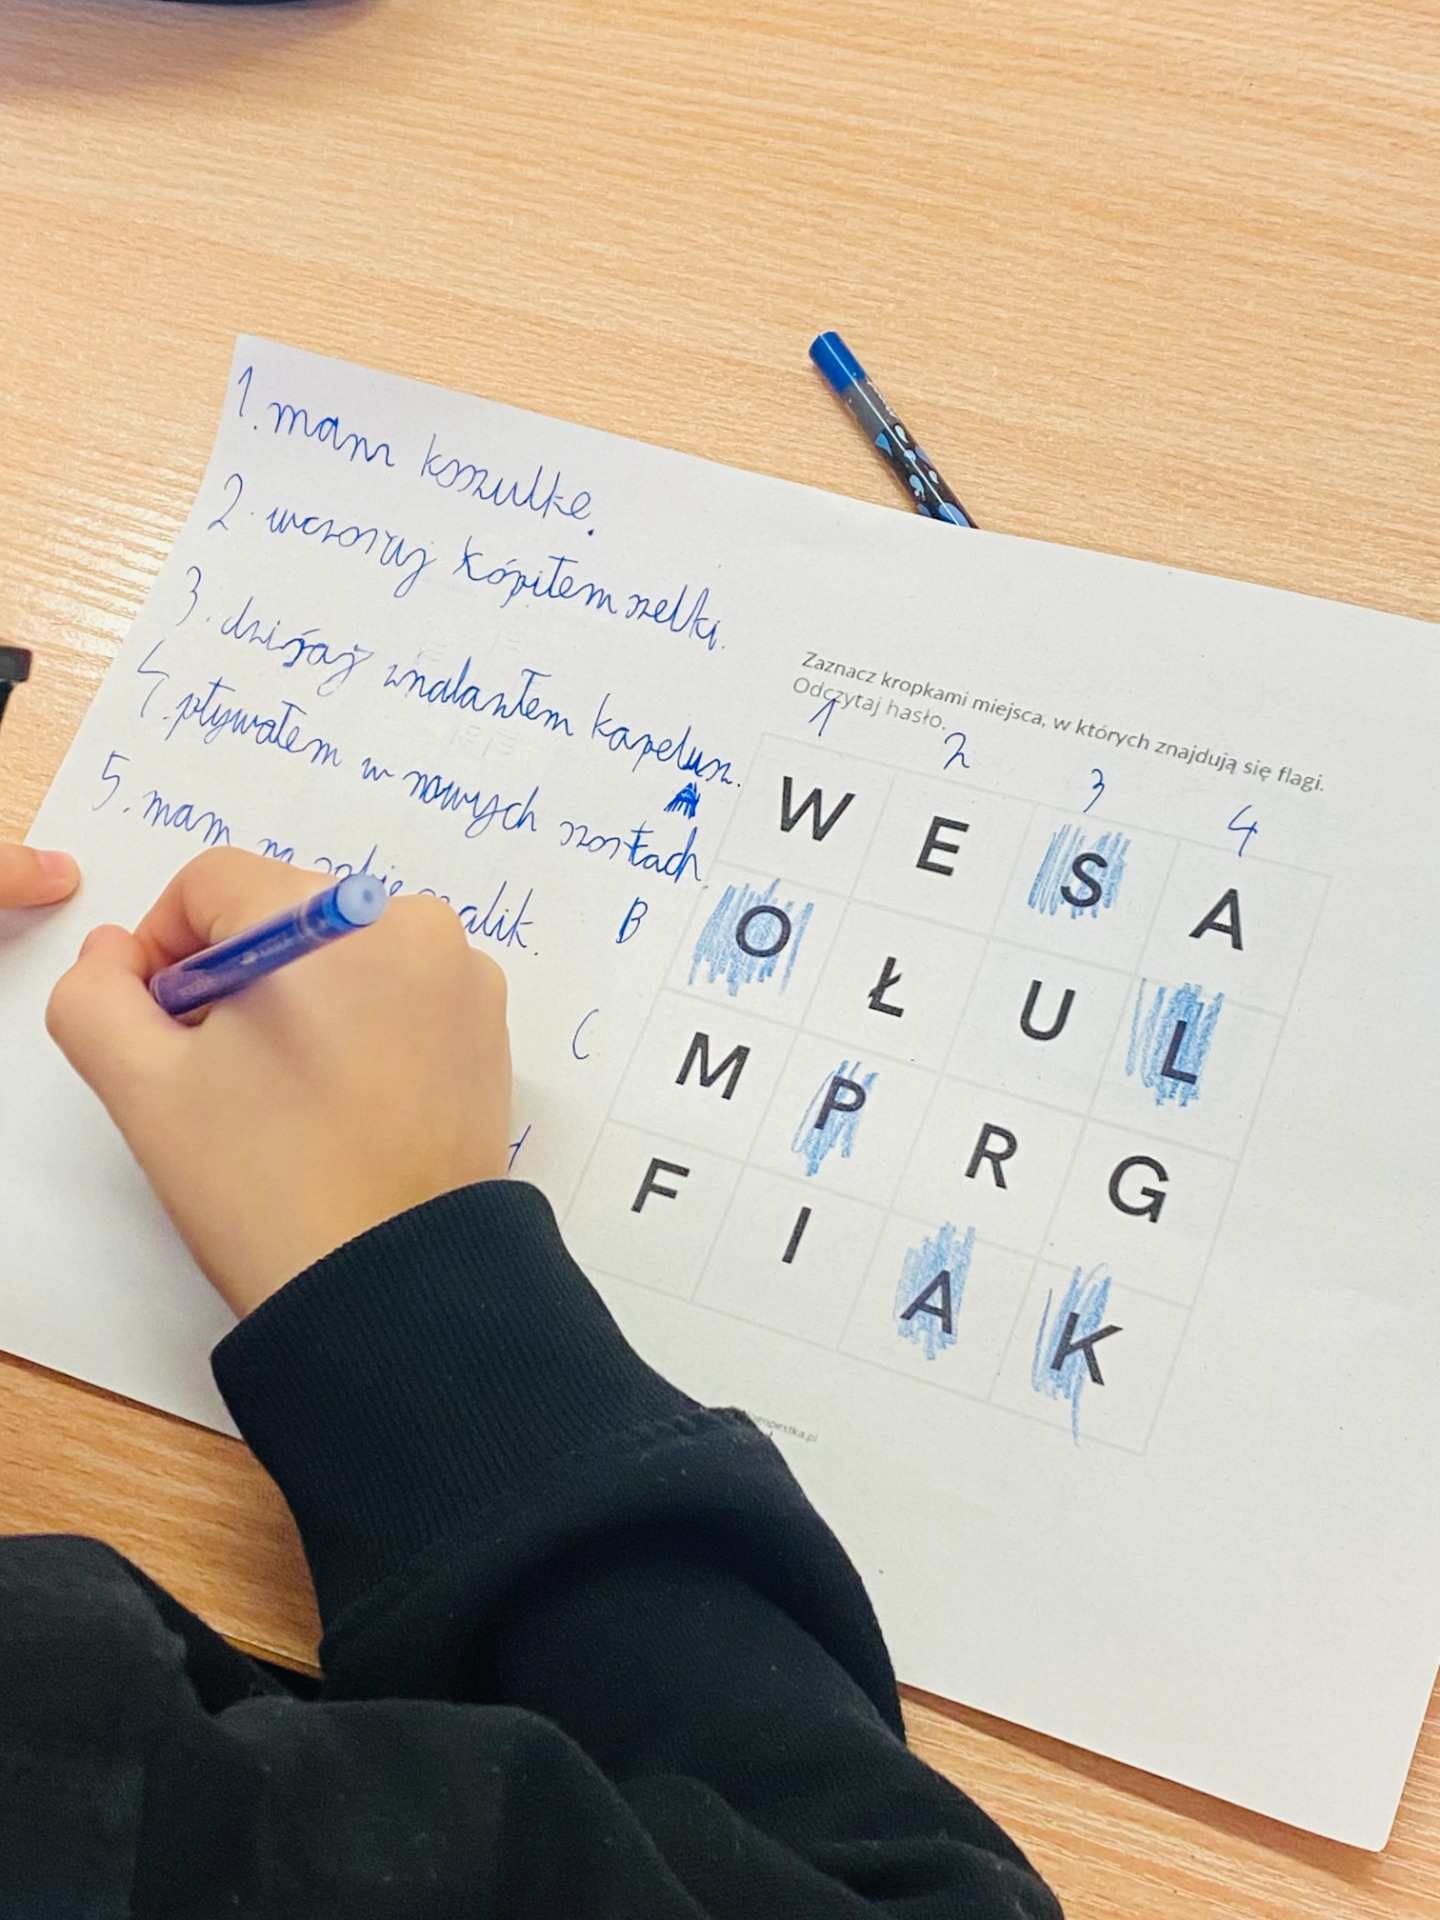 1. mam koszulkę.
2. wczoraj kópiłem szelki.
3. dzisiaj znalazłem kapelusz.
4. pływałem w nowych szortach.
5. mam na sobie szalik.
Zaznacz kropkami miejsca, w których znajdują się flagi.
Odczytaj hasło.
1 2 3 4
A W E S A
B O Ł U L
C M P R G
d F I A K